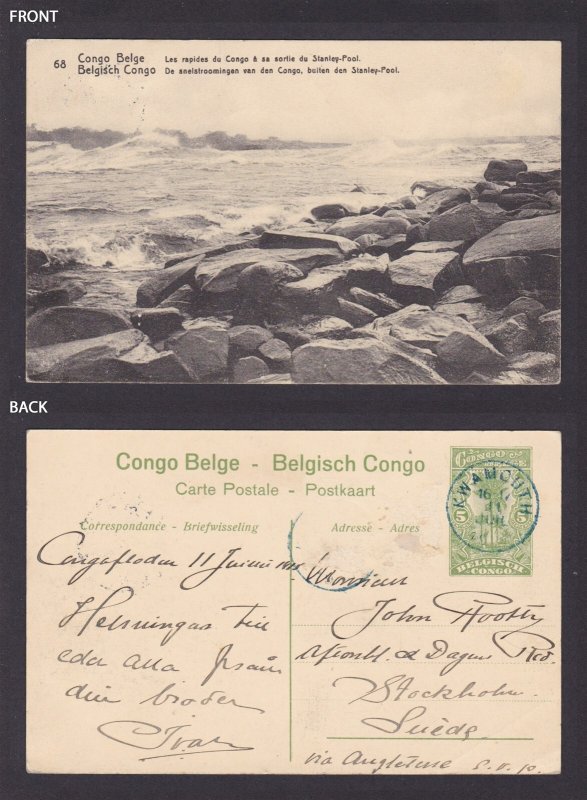 FRONT
68 Congo Belge Les rapides du Congo à sa sortie du Stanley-Pool.
Belgisch Congo De snelstroomingen van den Congo, buiten den Stanley-Pool.
BACK
Congo Belge - Belgisch Congo
Carte Postale - Postkaart
Correspondance - Briefwisseling
Adresse - Adres
CONGO
BELGE
5 5
BELGISCH
CONGO
KWAMOUTH
Congofloden 11 Juni
Helsningar till
eder alla från
din broder
Ivar
Monsieur
John
Aftonbl. & Dagens Red.
Stockholm.
Suède.
via Angleterre s.v.p.